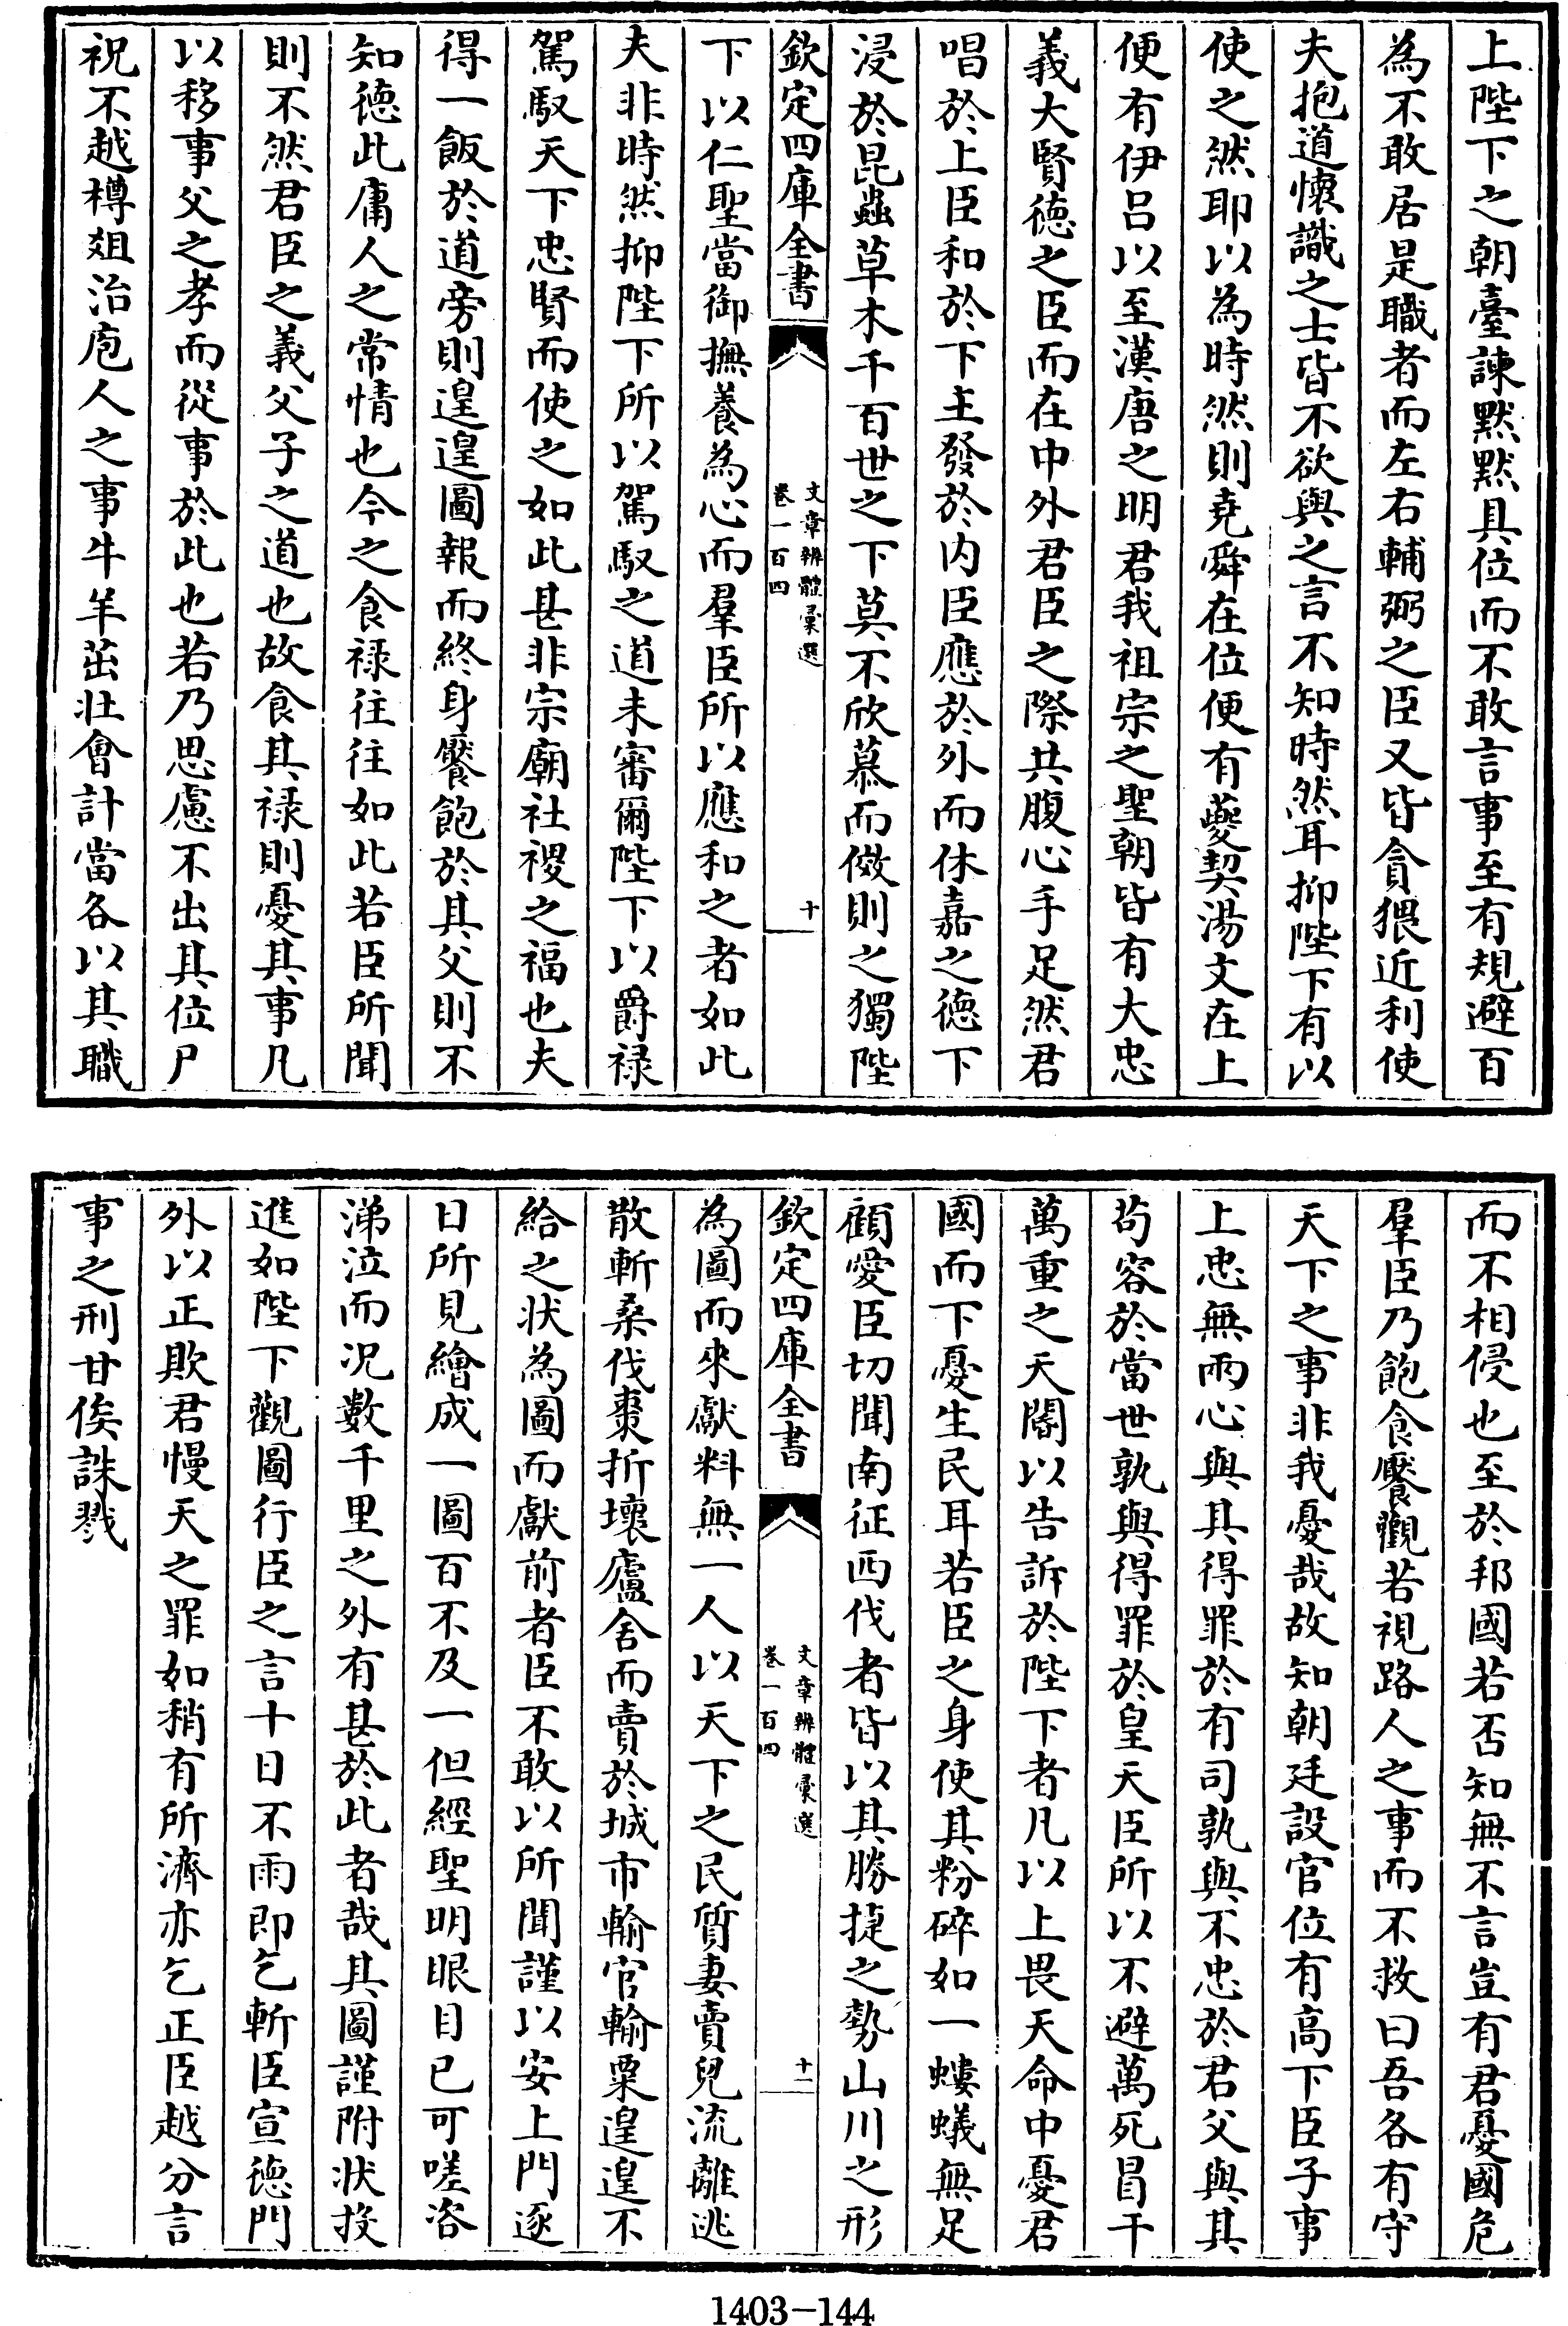 上陛下之朝臺諫黙黙具位而不敢言事至有規避百
為不敢居是職者而左右輔弼之臣又皆貪猥近利使
夫抱道懐識之士皆不欲與之言不知時然耳抑陛下有以
使之然耶以為時然則堯舜在位便有䕫契湯文在上
便有伊吕以至漢唐之明君我祖宗之聖朝皆有大忠
義大賢徳之臣而在中外君臣之際共腹心手足然君
唱於上臣和於下主發於内臣應於外而休嘉之徳下
浸於昆蟲草木千百世之下莫不欣慕而倣則之獨陛
欽定四庫全書
文章辨體彙選
卷一百四
十
下以仁聖當御撫養為心而羣臣所以應和之者如此
夫非時然抑陛下所以駕馭之道未審爾陛下以爵禄
駕馭天下忠賢而使之如此甚非宗廟社禝之福也夫
得一飯於道旁則遑遑圖報而終身饜飽於其父則不
知徳此庸人之常情也今之食禄往往如此若臣所聞
則不然君臣之義父子之道也故食其禄則憂其事凡
以移事父之孝而從事於此也若乃思慮不出其位尸
祝不越樽爼治庖人之事牛羊茁壯會計當各以其職
而不相侵也至於邦國若否知無不言豈有君憂國危
羣臣乃飽食饜觀若視路人之事而不救曰吾各有守
天下之事非我憂哉故知朝廷設官位有高下臣子事
上忠無兩心與其得罪於有司孰與不忠於君父與其
茍容於當世孰與得罪於皇天臣所以不避萬死冒干
萬重之天閽以告訴於陛下者凡以上畏天命中憂君
國而下憂生民耳若臣之身使其粉碎如一螻蟻無足
顧愛臣切聞南征西伐者皆以其勝捷之勢山川之形
欽定四庫全書
文章辨體彙選
卷一百四
十一
為圖而來獻料無一人以天下之民質妻賣兒流離逃
散斬桑伐棗折壞廬舍而賣於城市輸官輸粟遑遑不
給之状為圖而獻前者臣不敢以所聞謹以安上門逐
日所見繪成一圖百不及一但經聖明眼目已可嗟咨
涕泣而况數千里之外有甚於此者哉其圖謹附状投
進如陛下觀圖行臣之言十日不雨即乞斬臣宣徳門
外以正欺君慢天之罪如稍有所濟亦乞正臣越分言
事之刑甘俟誅戮
1403-144